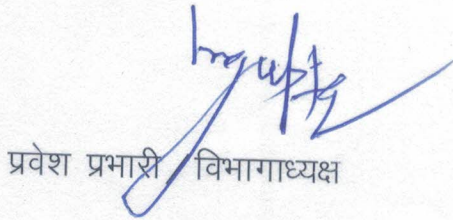 प्रवेश प्रभारी विभागाध्यक्ष